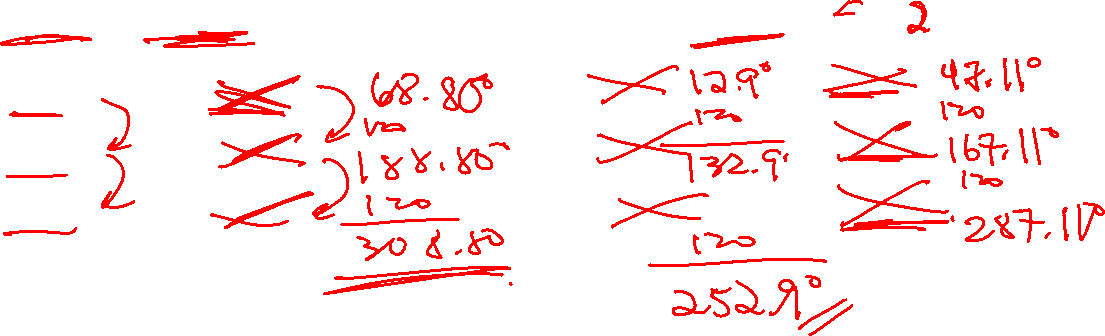 2
68.80°
120
188.80°
120
308.80
12.9°
120
132.9°
120
252.9°
47.11°
120
167.11°
120
287.11°